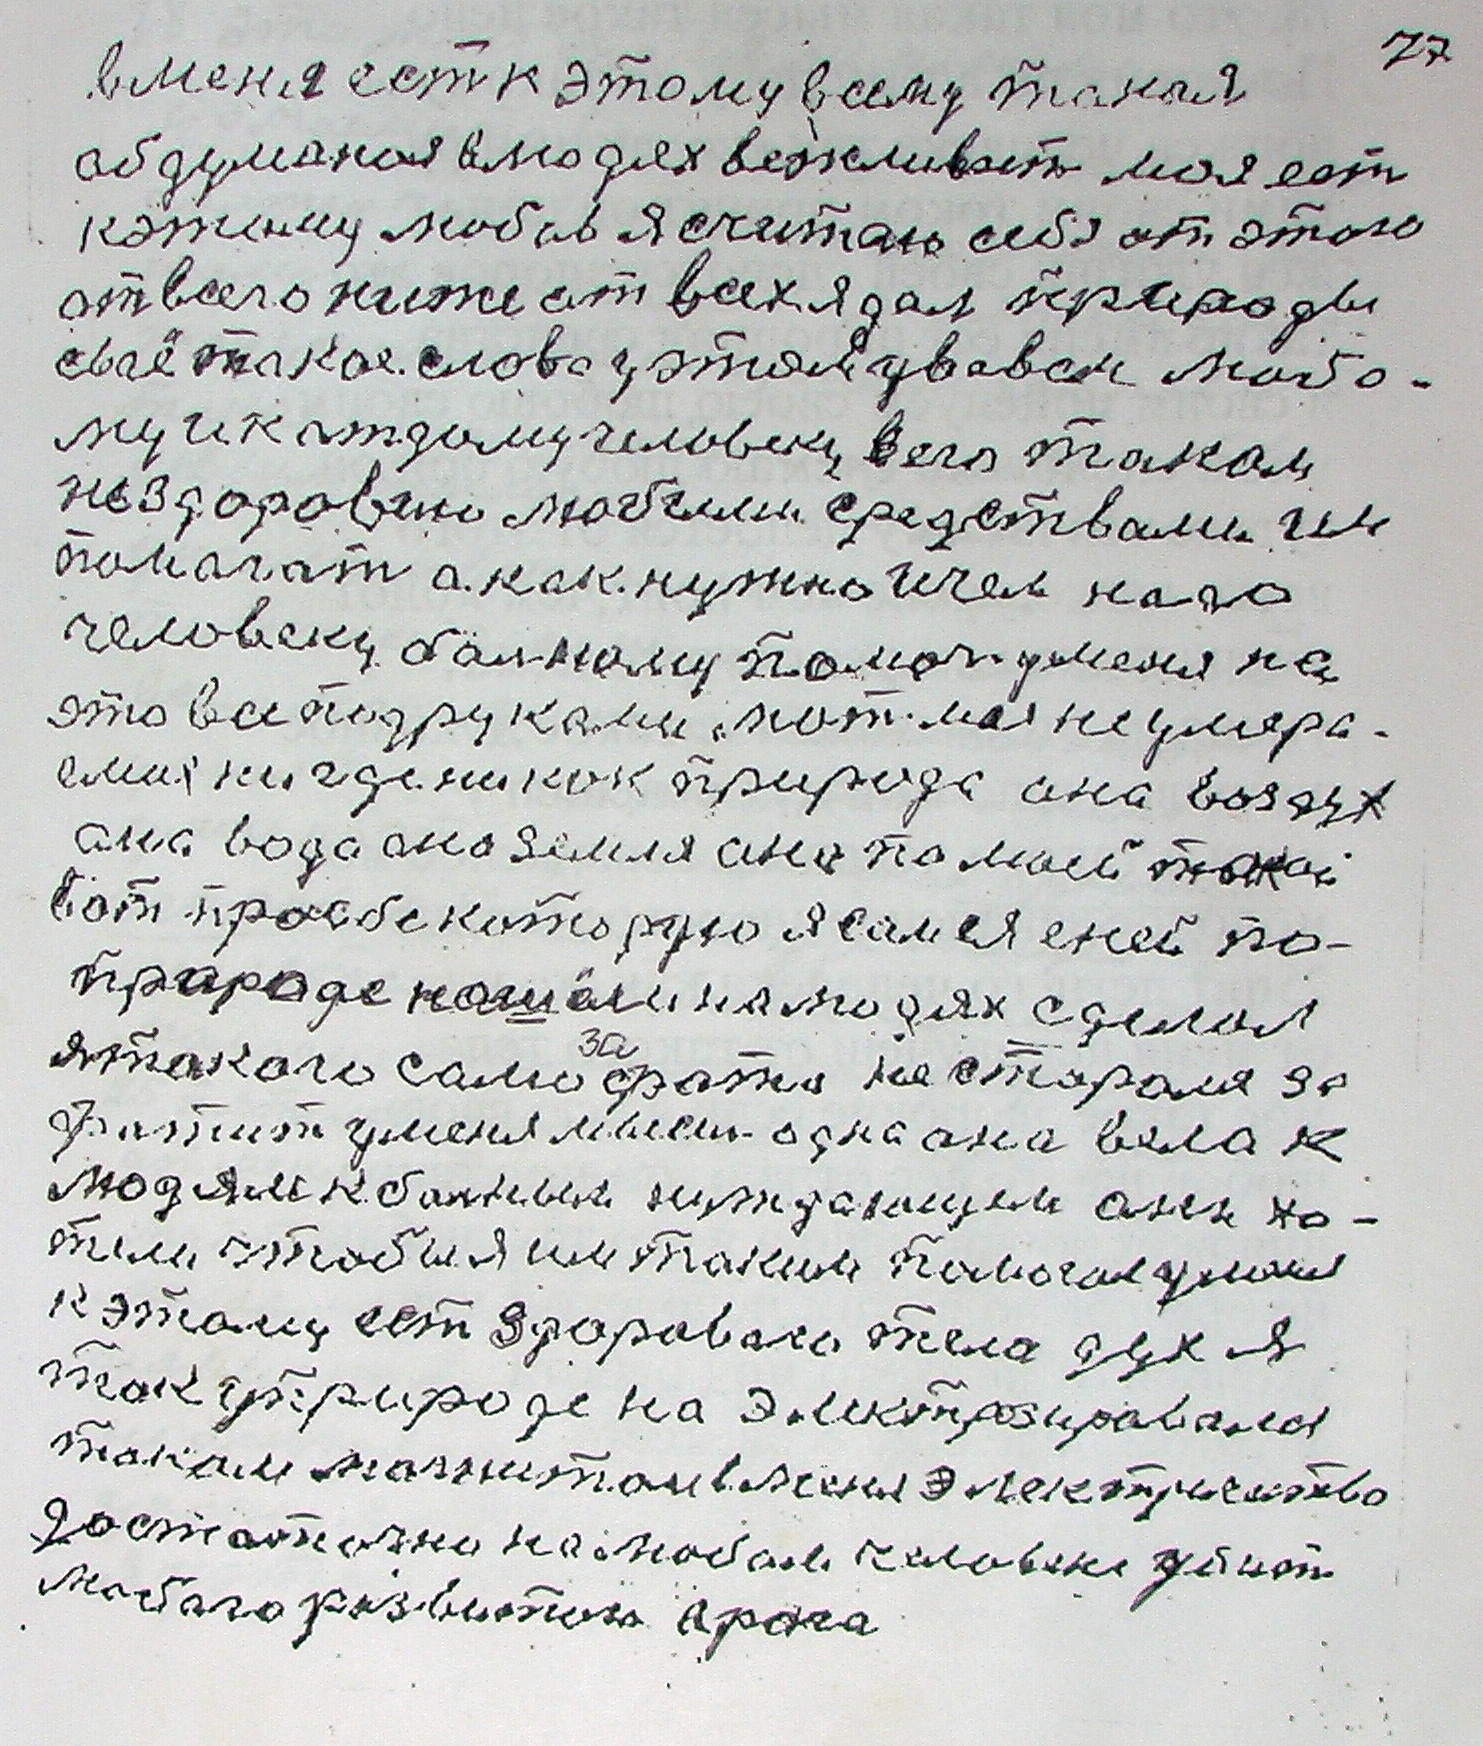 77
вменя ест к этому всему такая
абдуманая влюдях вежливаст моя ест
кэтому любов я считаю себя от этого
отвсего ниже от всех я дал природы
своё такое слова устоят увавсем любо-
му икаждому человеку, вего таком
нездоровию любыми средствами им
помагат а как нужно ичем надо
человеку, балному памоч уменя на
это все подруками, мая неумера-
емая нигде никак природа ана воздух
ана вода ана земля ана памоей такой
вот прозбе которую ясамся сней по-
прароде нашоли на людях сделал
я такого само зафрата не старался за
фатит уменя мысль одна ана вела к
людям к балным нуждающем ани хо-
тели чтобы я им таким помогал уменя
к этаму ест здоровага тела дух я
так уприроде на электрозировался
таким магнитом вменя электричество
достаточно на любом человеке убит
любога развитого врага